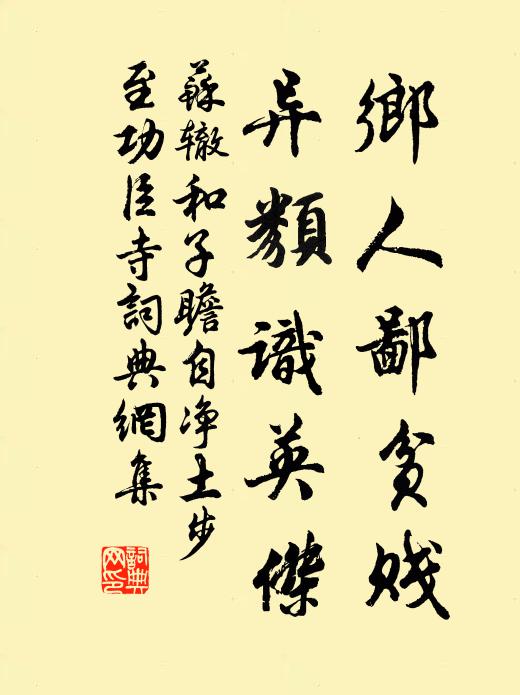 鄉人鄙貧賤
异類識英傑
蘇辙和子瞻自净土步
至功臣寺詞典網集
詞典
网印